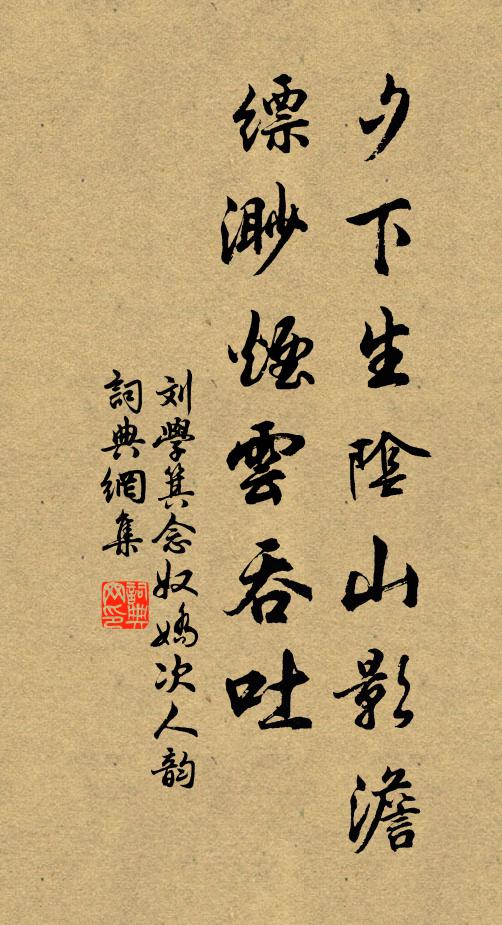 夕下生陰山影澹
縹渺煙雲吞吐
刘學箕念奴嬌次人韵
詞典網集
詞典網印